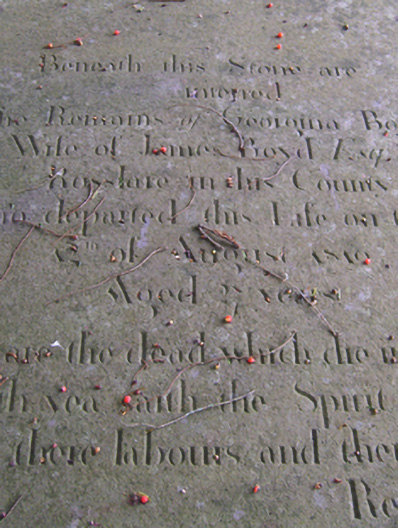 Beneath this Stone are
interred
he Remains of Georgina Bo
Wife of James Boyd Esq.
Rosslare in this County
o departed this Life on t
12th of August
Aged years
are the dead which die in
th yea saith the Spirit
there labours and the
Re